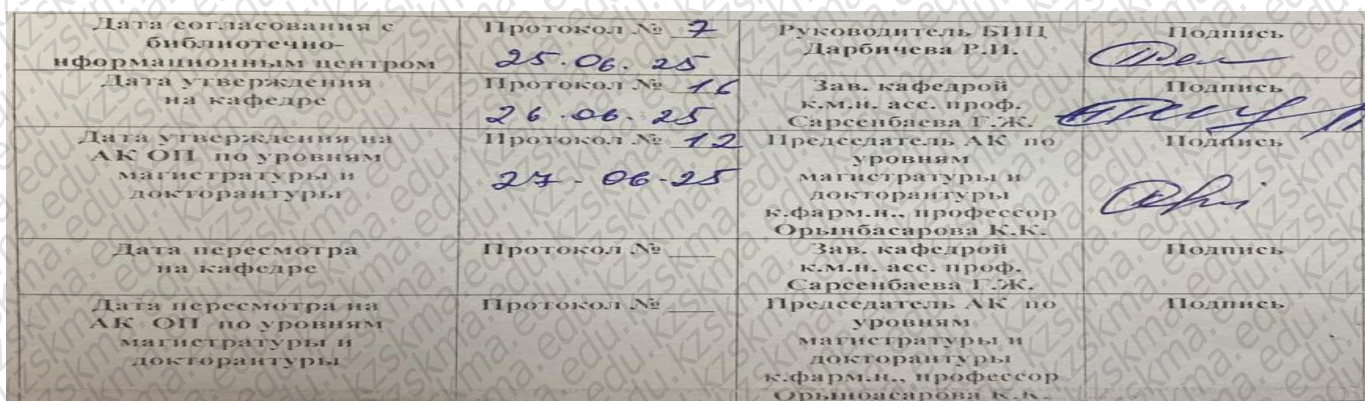 Дата согласования с
библиотечно-
нформационным центром
Протокол № 7
25.06.25
Руководитель БИЦ
Дарбичева Р.И.
Подпись
Дата утверждения
на кафедре
Протокол № 16
26.06.25
Зав. кафедрой
к.м.н. асс. проф.
Сарсенбаева Г.Ж.
Подпись
Дата утверждения на
АК ОП по уровням
магистратуры и
докторантуры
Протокол № 12
27-06-25
Председатель АК по
уровням
магистратуры и
докторантуры
к.фарм.н., профессор
Орынбасарова К.К.
Подпись
Дата пересмотра
на кафедре
Протокол № ___
Зав. кафедрой
к.м.н. асс. проф.
Сарсенбаева Г.Ж.
Подпись
Дата пересмотра на
АК ОП по уровням
магистратуры и
докторантуры
Протокол № ___
Председатель АК по
уровням
магистратуры и
докторантуры
к.фарм.н., профессор
Орынбасарова К.К.
Подпись